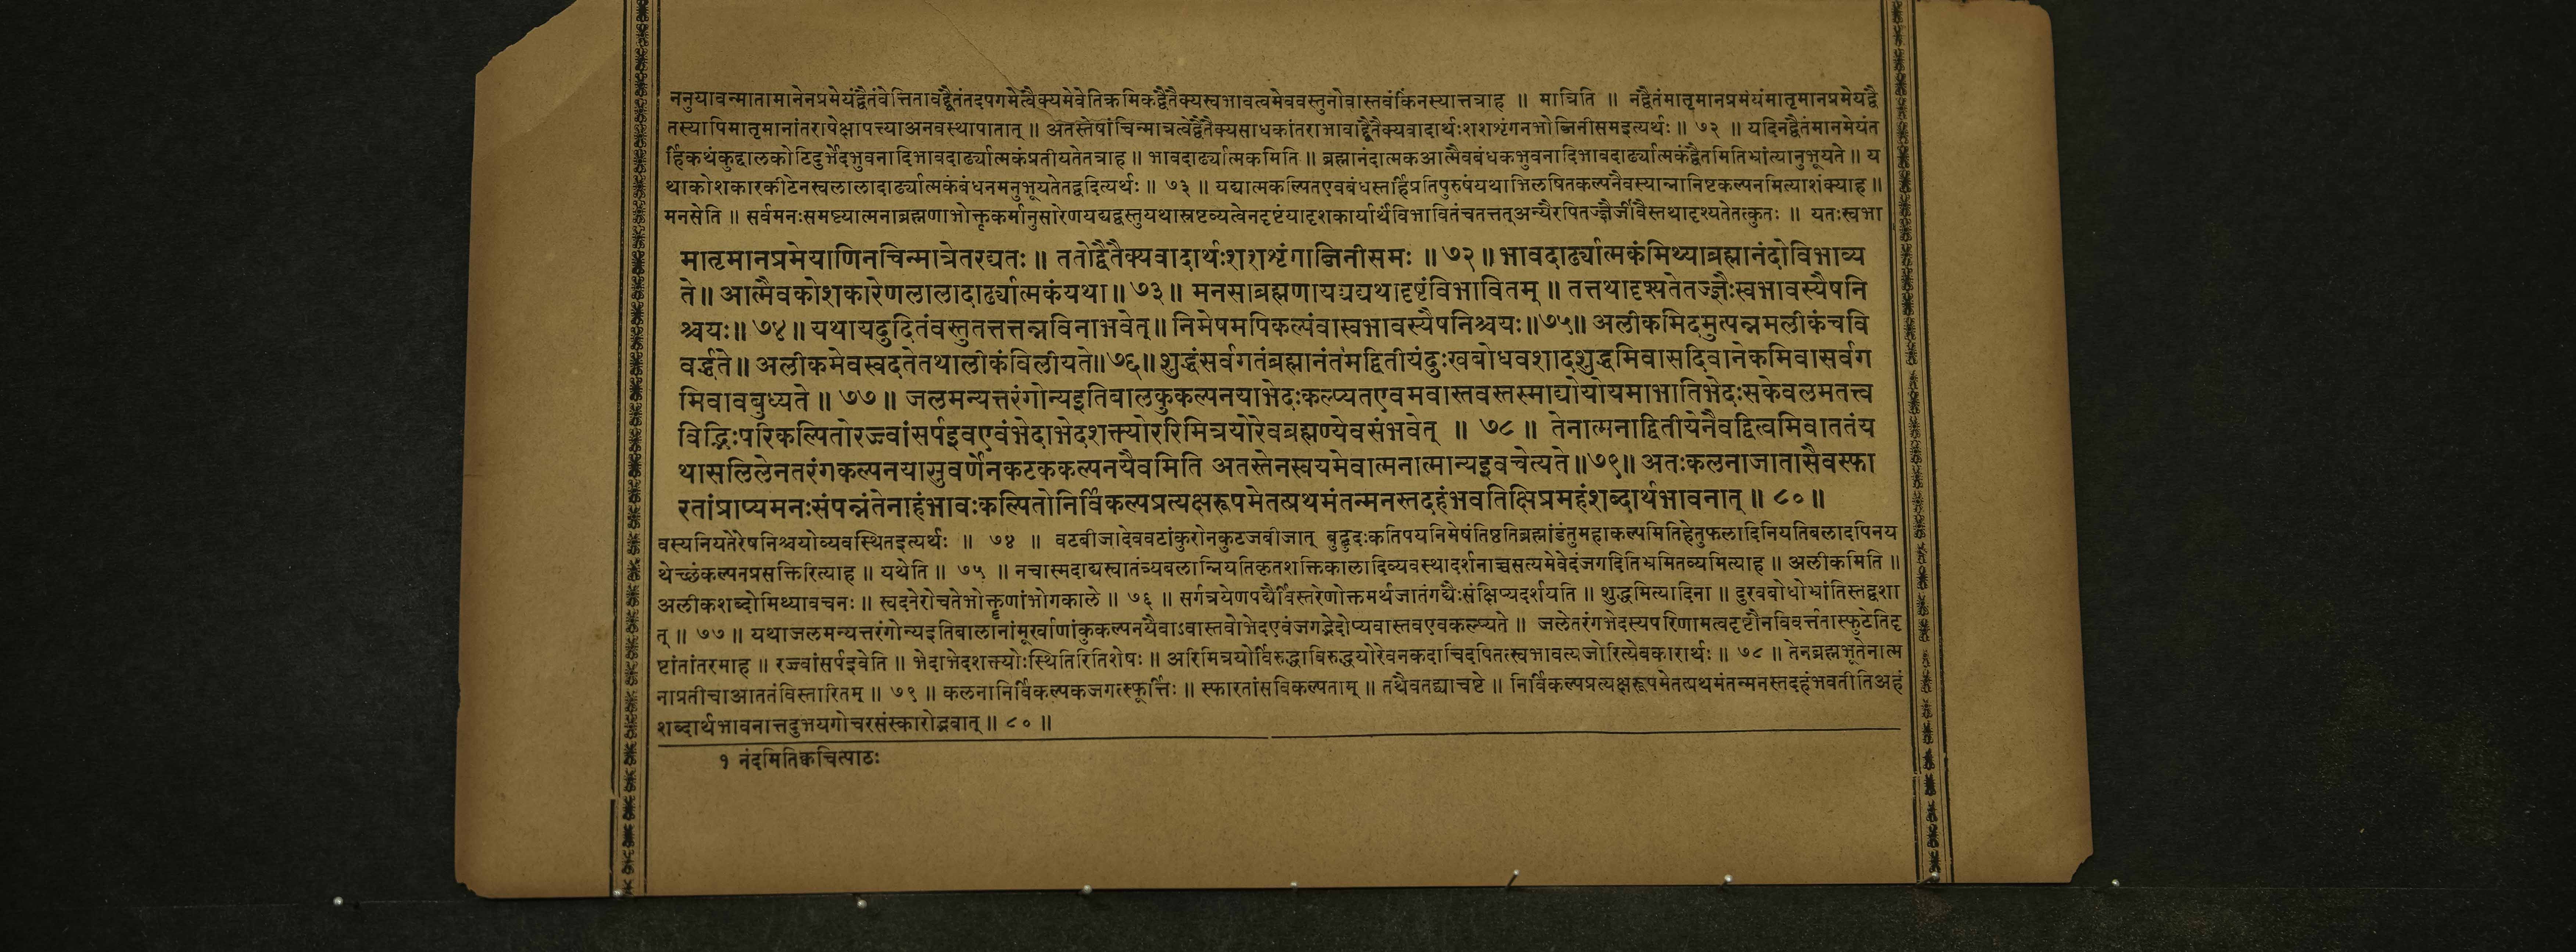 ननुयावन्मातामानेनप्रमेयंद्वैतंवेत्तितावद्द्वैतंतदपगमेत्वैक्यमेवेतिक्रमिकद्वैतैक्यस्वभावत्वमेववस्तुनोवास्तवंकिंनस्यात्तत्राह ॥ मात्रिति ॥ नद्वैतंमातृमानप्रमेयंमातृमानप्रमेयद्वै
तस्यापिमातृमानांतरापेक्षापत्त्याअनवस्थापातात् ॥ अतस्तेषांचिन्मात्रत्वेद्वैतैक्यसाधकांतराभावाद्द्वैतैक्यवादार्थःशशशृंगनभोब्जिनीसमइत्यर्थः ॥ ७२ ॥ यदिनद्वैतंमानमेयंत
र्हिकथंकुद्दालकोटिदुर्भेदभुवनादिभावदार्ढ्यात्मकंप्रतीयतेतत्राह ॥ भावदार्ढ्यात्मकमिति ॥ ब्रह्मानंदात्मकआत्मैवबंधकभुवनादिभावदार्ढ्यात्मकंद्वैतमितिभ्रांत्यानुभूयते ॥ य
थाकोशकारकीटेनस्वलालादार्ढ्यात्मकंबंधनमनुभूयतेतद्वदित्यर्थः ॥ ७३ ॥ यद्यात्मकल्पितएवबंधस्तर्हिप्रतिपुरुषंयथाभिलषितकल्पनैवस्यान्नानिष्टकल्पनमित्याशंक्याह ॥
मनसेति ॥ सर्वमनःसमष्ट्यात्मनाब्रह्मणाभोक्तृकर्मानुसारेणयद्यद्वस्तुयथास्रष्टव्यत्वेनदृष्टंयादृशकार्यार्थंविभावितंचतत्तत्अन्यैरपितज्ज्ञैर्जीवैस्तथादृश्यतेतत्कुतः ॥ यतःस्वभा
मातृमानप्रमेयाणिनचिन्मात्रेतरद्यतः ॥ ततोद्वैतैक्यवादार्थःशशशृंगाब्जिनीसमः ॥ ७२ ॥ भावदार्ढ्यात्मकंमिथ्याब्रह्मानंदोविभाव्य
ते ॥ आत्मैवकोशकारेणलालादार्ढ्यात्मकंयथा ॥ ७३ ॥ मनसाब्रह्मणायद्यद्यथादृष्टंविभावितम् ॥ तत्तथादृश्यतेतज्ज्ञैःस्वभावस्यैषनि
श्चयः ॥ ७४ ॥ यथायदुदितंवस्तुतत्तत्तन्नविनाभवेत् ॥ निमेषमपिकल्पंवास्वभावस्यैषनिश्चयः ॥७५॥ अलीकमिदमुत्पन्नमलीकंचवि
वर्द्धते ॥ अलीकमेवस्वदतेतथालीकंविलीयते॥७६॥ शुद्धंसर्वगतंब्रह्मानंतमद्वितीयंदुःखबोधवशादशुद्धमिवासदिवानेकमिवासर्वग
मिवावबुध्यते ॥ ७७ ॥ जलमन्यत्तरंगोन्यइतिबालकुकल्पनयाभेदःकल्प्यतएवमवास्तवस्तस्माद्योयोयमाभातिभेदःसकेवलमतत्त्व
विद्भिःपरिकल्पितोरज्ज्वांसर्पइवएवंभेदाभेदशक्त्योररिमित्रयोरेवब्रह्मण्येवसंभवेत् ॥ ७८ ॥ तेनात्मनाद्वितीयेनैवद्वित्वमिवाततंय
थासलिलेनतरंगकल्पनयासुवर्णेनकटककल्पनयैवमिति अतस्तेनस्वयमेवात्मनात्मान्यइवचेत्यते ॥७९॥ अतःकलनाजातासैवस्फा
रतांप्राप्यमनःसंपन्नंतेनाहंभावःकल्पितोनिर्विकल्पप्रत्यक्षरूपमेतत्प्रथमंतन्मनस्तदहंभवतिक्षिप्रमहंशब्दार्थभावनात् ॥ ८० ॥
वस्यनियतेरेषनिश्चयोव्यवस्थितइत्यर्थः ॥ ७४ ॥ वटबीजादेववटांकुरोनकुटजबीजात् बुद्बुदःकतिपयनिमेषंतिष्ठतिब्रह्मांडंतुमहाकल्पमितिहेतुफलादिनियतिबलादपिनय
थेच्छंकल्पनप्रसक्तिरित्याह ॥ यथेति ॥ ७५ ॥ नचास्मदाद्यस्वातंत्र्यबलान्नियतिकृतशक्तिकालादिव्यवस्थादर्शनाच्चसत्यमेवेदंजगदितिभ्रमितव्यमित्याह ॥ अलीकमिति ॥
अलीकशब्दोमिथ्यावचनः ॥ स्वदनेरोचतेभोक्तॄणांभोगकाले ॥ ७६ ॥ सर्गत्रयेणपद्यैर्विस्तरेणोक्तमर्थजातंगद्यैःसंक्षिप्यदर्शयति ॥ शुद्धमित्यादिना ॥ दुरवबोधोभ्रांतिस्तद्वशा
त् ॥ ७७ ॥ यथाजलमन्यत्तरंगोन्यइतिबालानांमूर्खाणांकुकल्पनयैवाऽवास्तवोभेदएवंजगद्भेदोप्यवास्तवएवकल्प्यते ॥ जलेतरंगभेदस्यपरिणामत्वदृष्टौनविवर्त्ततास्फुटेतिदृ
ष्टांतांतरमाह ॥ रज्ज्वांसर्पइवेति ॥ भेदाभेदशक्त्योःस्थितिरितिशेषः ॥ अरिमित्रयोर्विरुद्धाविरुद्धयोरेवनकदाचिदपितत्स्वभावत्यजोरित्येवकारार्थः ॥ ७८ ॥ तेनब्रह्मभूतेनात्म
नाप्रतीचाआततंविस्तारितम् ॥ ७९ ॥ कलनानिर्विकल्पकजगत्स्फूर्त्तिः ॥ स्फारतांसविकल्पताम् ॥ तथैवतद्व्याचष्टे ॥ निर्विकल्पप्रत्यक्षरूपमेतत्प्रथमंतन्मनस्तदहंभवतीतिअहं
शब्दार्थभावनात्तदुभयगोचरसंस्कारोद्भवात् ॥ ८० ॥
१ नंदमितिक्वचित्पाठः